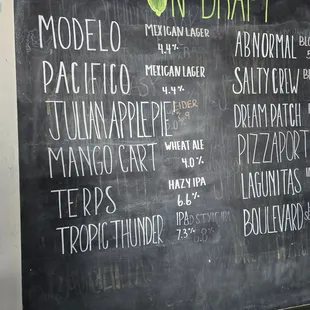 ON DRAFT
MODELO MEXICAN LAGER 4.4%
PACIFICO MEXICAN LAGER 4.4%
JULIAN APPLE PIE CIDER
MANGO CART WHEAT ALE 4.0%
TERPS HAZY IPA 6.6%
TROPIC THUNDER IPA 7.3%
ABNORMAL
SALTY CREW
DREAM PATCH
PIZZA PORT
LAGUNITAS
BOULEVARD